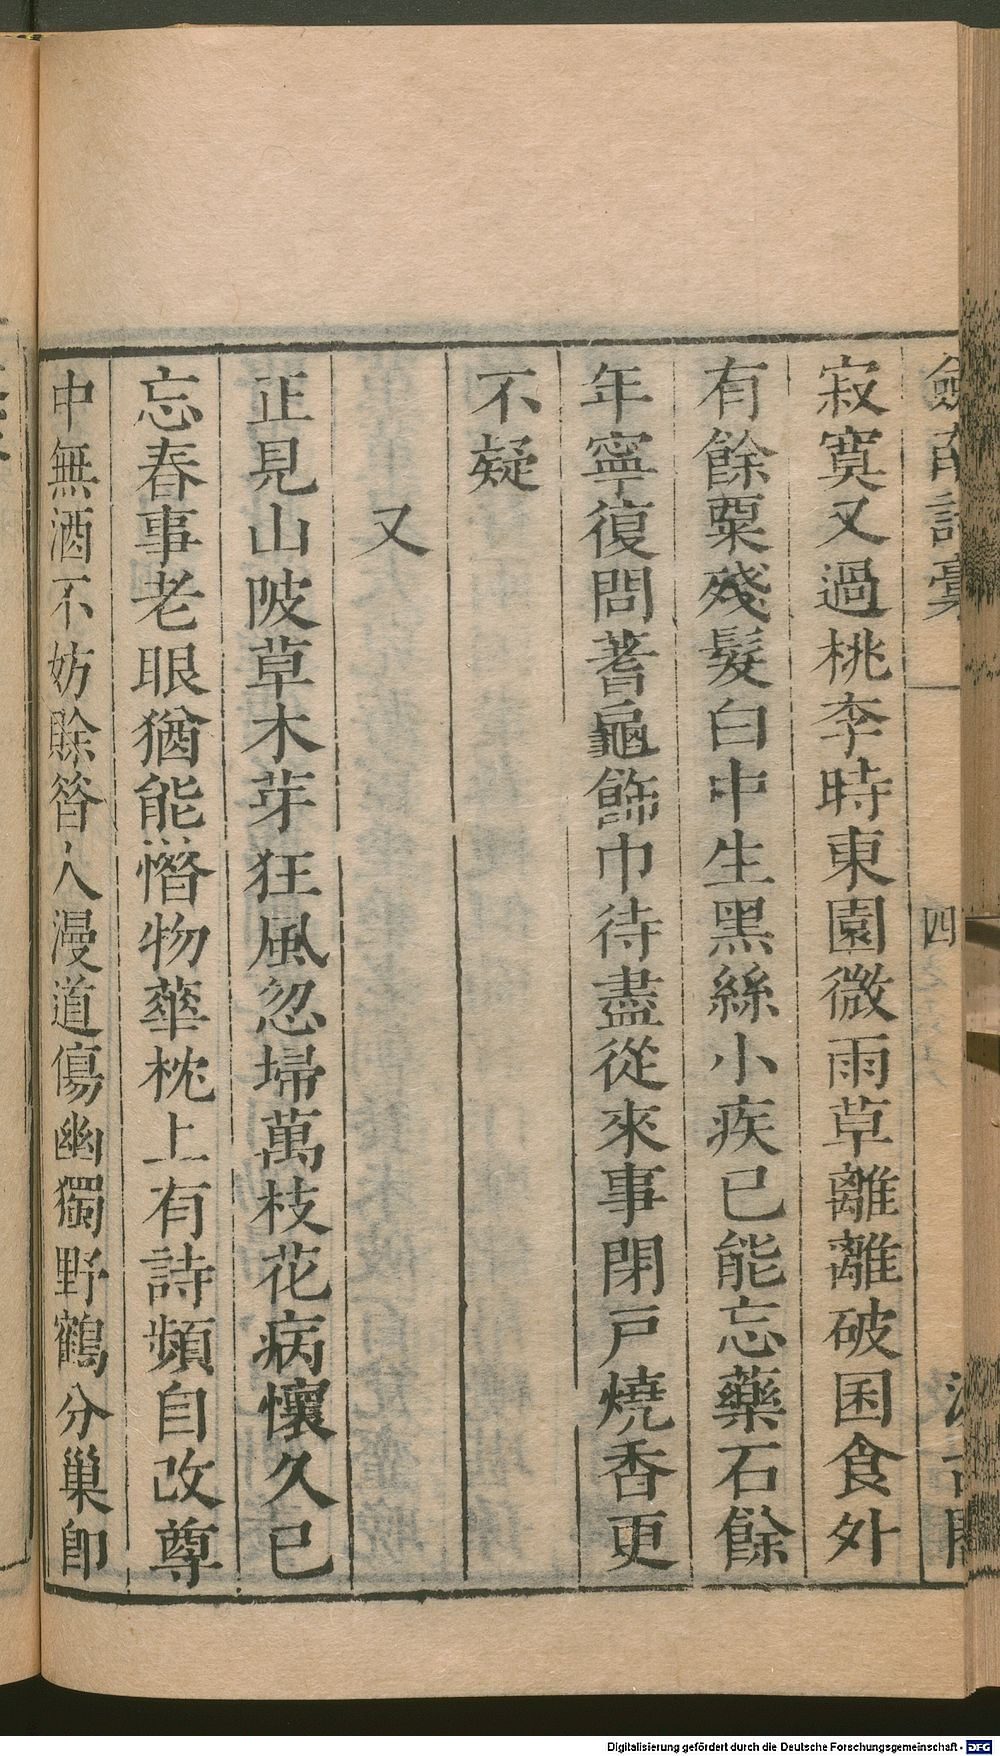 劒南詩稾
四
寂寞又過桃李時東園微雨草離離破囷食外
有餘粟殘髮白中生黑絲小疾已能忘藥石餘
年寧復問蓍龜飾巾待盡從來事閉戸燒香更
不疑
又
正見山陂草木芽狂風忽埽萬枝花病懷久已
忘春事老眼猶能愔物華枕上有詩頻自改尊
中無酒不妨賖笞人漫道傷幽獨野鶴分巢卽
Digitalisierung gefördert durch die Deutsche Forschungsgemeinschaft - DFG